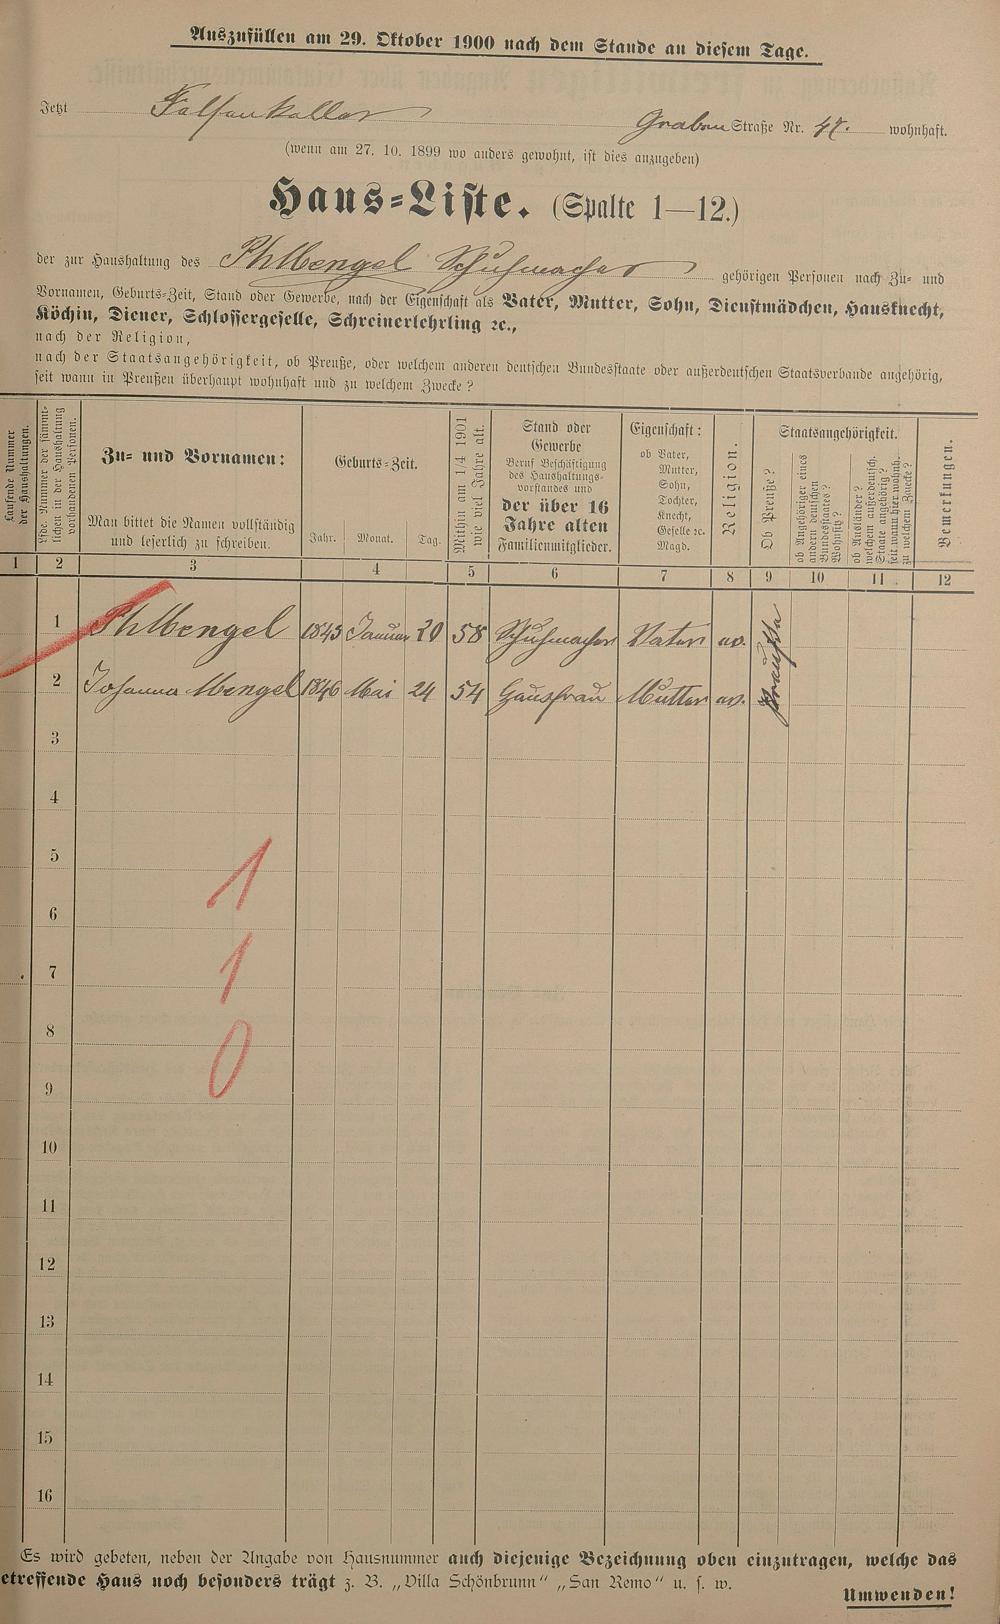 Auszufüllen am 29. Oktober 1900 nach dem Stande an diesem Tage.
Jetzt Felsenkeller Graben Straße Nr. 47. wohnhaft.
(wenn am 27. 10. 1899 wo anders gewohnt, ist dies anzugeben)
Haus=Liste. (Spalte 1—12.)
der zur Haushaltung des Ph Mengel Schuhmacher gehörigen Personen nach Zu- und
Vornamen, Geburts-Zeit, Stand oder Gewerbe, nach der Eigenschaft als Vater, Mutter, Sohn, Dienstmädchen, Hausknecht,
Köchin, Diener, Schlossergeselle, Schreinerlehrling ꝛc.,
nach der Religion,
nach der Staatsangehörigkeit, ob Preuße, oder welchem anderen deutschen Bundesstaate oder außerdeutschen Staatsverbande angehörig,
seit wann in Preußen überhaupt wohnhaft und zu welchem Zwecke?
Laufende Nummer
der Haushaltungen.
Lfde. Nummer der sämmt-
lichen in der Haushaltung
vorhandenen Personen.
Zu= und Vornamen:
Man bittet die Namen vollständig
und leserlich zu schreiben.
Geburts=Zeit.
Jahr. Monat. Tag.
Mithin am 1/4 1901
wie viel Jahre alt.
Stand oder
Gewerbe
Beruf Beschäftigung
des Haushaltungs-
vorstandes und
der über 16
Jahre alten
Familienmitglieder.
Eigenschaft:
ob Vater,
Mutter,
Sohn,
Tochter,
Knecht,
Geselle ꝛc.
Magd.
Religion.
Staatsangehörigkeit.
Ob Preuße?
ob Angehöriger eines
andern deutschen
Bundesstaates?
Wohnsitz?
ob Ausländer?
welchem außerdeutsch.
Staate angehörig?
seit wann hier wohnh.
zu welchem Zwecke?
Bemerkungen.
1 2 3 4 5 6 7 8 9 10 11 12
1 Ph Mengel 1843 Januar 20 58 Schuhmacher Vater ev. Preuße
2 Johanna Mengel 1846 Mai 24 54 Hausfrau Mutter ev.
3
4
5
1
6
7
1
8
0
9
10
11
12
13
14
15
16
Es wird gebeten, neben der Angabe von Hausnummer auch diejenige Bezeichnung oben einzutragen, welche das
etreffende Haus noch besonders trägt z. B. „Villa Schönbrunn“ „San Remo“ u. s. w.
Umwenden!